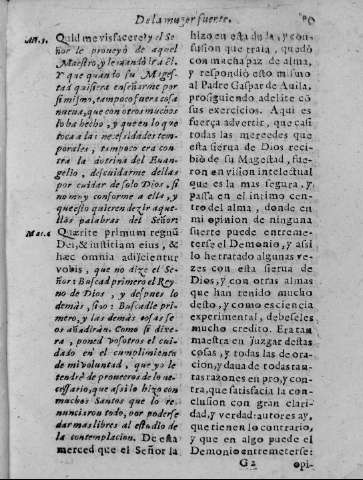 De la muger fuerte.
Act. 9.
Quid me vis facere? y el Se-
ñor le proveyò de aquel
Maestro, y le mandò ir a èl.
Y que quando su Mages-
tad quisiera enseñarme por
si mismo, tampoco fuera cosa
nueva, que con otros muchos
lo ha hecho, y que en lo que
toca a las necesidades tem-
porales, tampoco era con-
tra la dotrina del Euan-
gelio, descuidarme dellas
por cuidar de solo Dios, si
no muy conforme a ella, y
que esto quieren dezir aque-
llas palabras del Señor:
Mat. 6
Quærite primum regnũ
Dei, & iustitiam eius, &
hæc omnia adijcientur
vobis, que no dize el Se-
ñor: Buscad primero el Rey
no de Dios, y despues lo
demàs, sino: Buscadle pri-
mero, y las demàs cosas se
os añadiràn. Como si dixe-
ra, poned vosotros el cui-
dado en el cumplimiento
de mi voluntad, que yo le
tendrè de proveeros de lo ne-
cessario, que assi lo hizo con
muchos Santos que lo re-
nunciaron todo, por poderse
dar mas libres al estudio de
la contemplacion. De esta
merced que el Señor la
hizo en esta duda, y con-
fusion que traia, quedò
con mucha paz de alma,
y respondiò esto mismo
al Padre Gaspar de Auila,
prosiguiendo adelãte cõ
sus exercicios. Aqui es
fuerça advertir, que casi
todas las mercedes que
esta sierua de Dios reci-
biò de su Magestad, fue-
ron en vision intellectual
que es la mas segura, y
passa en el intimo cen-
tro del alma, donde en
mi opinion de ninguna
suerte puede entreme-
terse el Demonio, y assi
lo he tratado algunas ve-
zes con esta sierua de
Dios, y con otras almas
que han tenido mucho
desto, y como es ciencia
experimental, debeseles
mucho credito. Era tan
maestra en juzgar destas
cosas, y todas las de ora-
cion, y daua de todas tan-
tas razones en pro, y con-
tra, que satisfacia la con-
clusion con gran clari-
dad, y verdad: autores ay,
que tienen lo contrario,
y que en algo puede el
Demonio entremeterse:
G 2
opi-